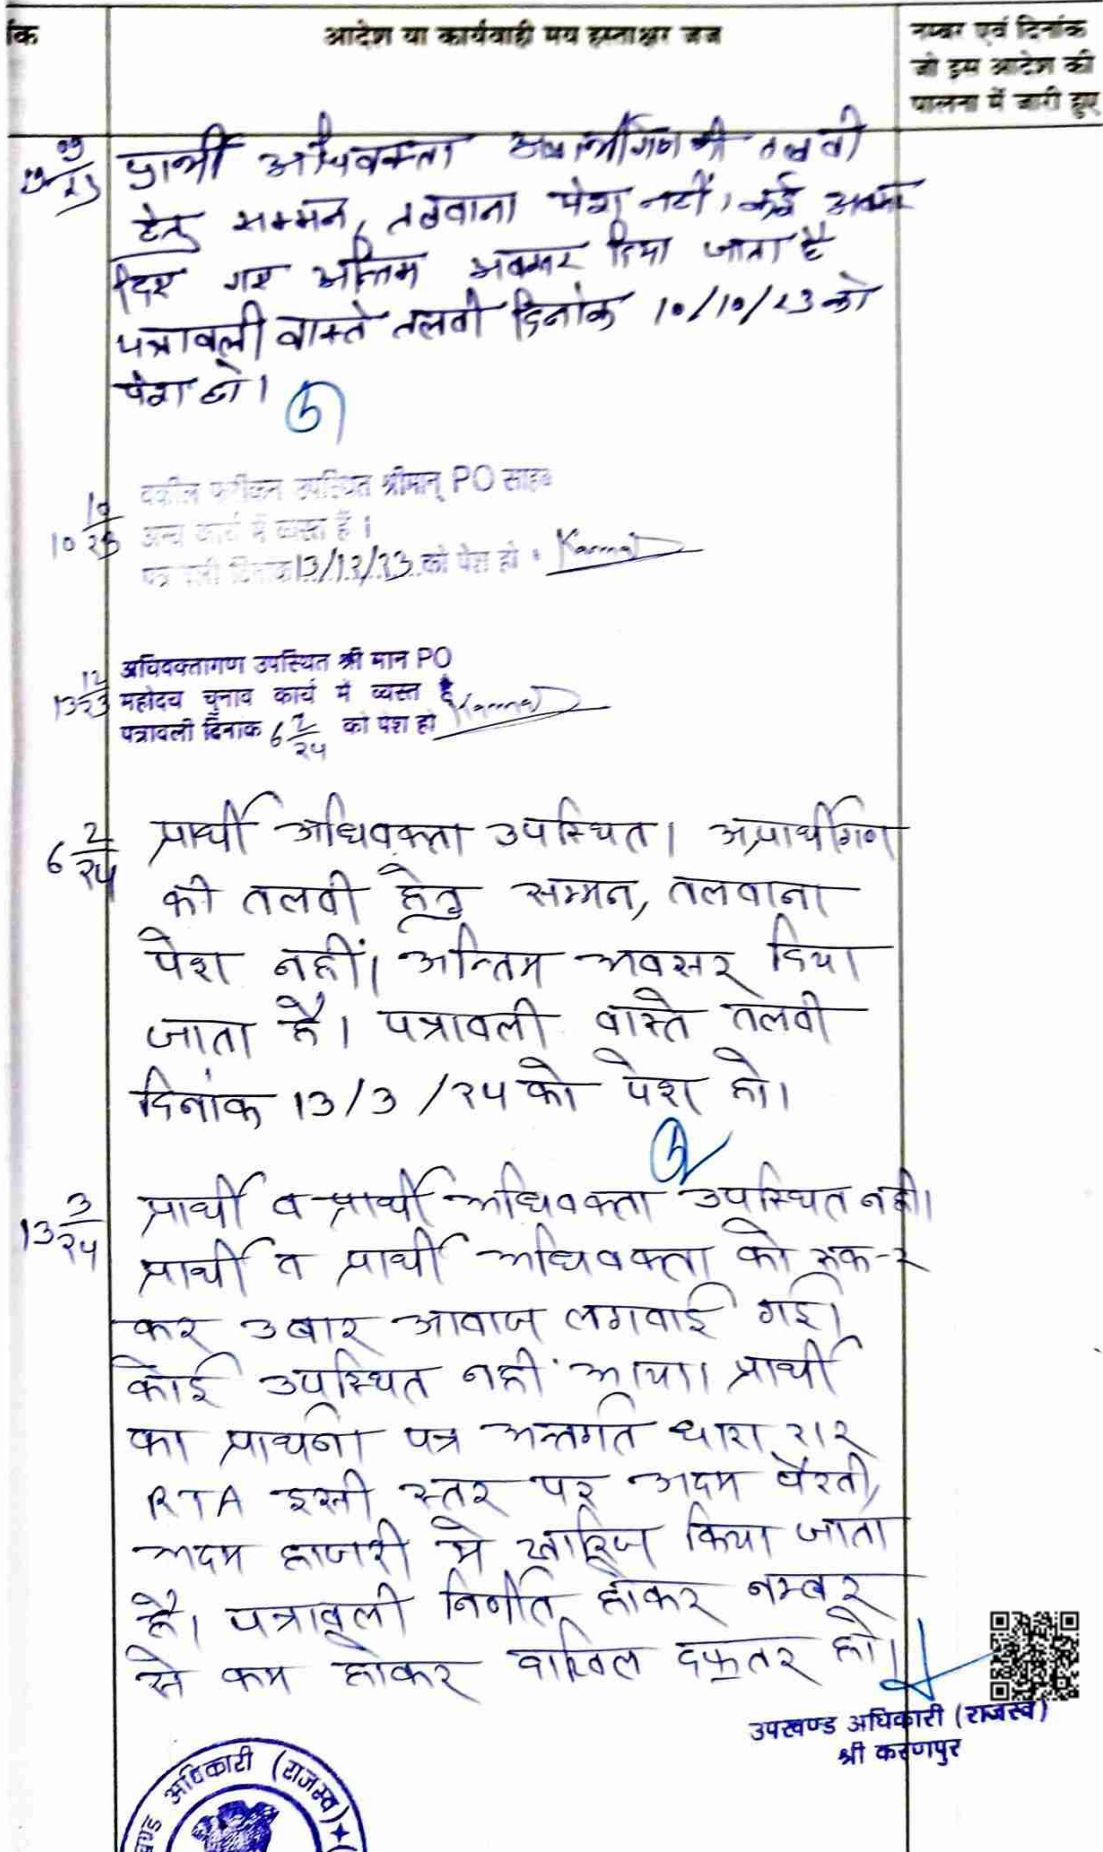 ांक
आदेश या कार्यवाही मय हस्ताक्षर जज
नम्बर एवं दिनांक
जो इस आदेश की
पालना में जारी हुए
09
23
प्रार्थी अधिवक्ता अप्रार्थीगण की तलबी
हेतु सम्मन, तलवाना पेश नहीं। कई अवसर
दिए गए अन्तिम अवसर दिया जाता है
पत्रावली वास्ते तलबी दिनांक 10/10/23 को
पेश हो।
10 10/23
वकील फरीकन उपस्थित श्रीमान् PO साहब
अन्य कार्य में व्यस्त हैं।
पत्रावली दिनांक 13/12/23 को पेश हो। Karmal
13 12/23
अधिवक्तागण उपस्थित श्री मान PO
महोदय चुनाव कार्य में व्यस्त है
पत्रावली दिनांक 6 2/24 को पेश हो Karmal
6 2/24
प्रार्थी अधिवक्ता उपस्थित। अप्रार्थीगण
की तलबी हेतु सम्मन, तलवाना
पेश नहीं। अन्तिम अवसर दिया
जाता है। पत्रावली वास्ते तलबी
दिनांक 13/3/24 को पेश हो।
13 3/24
प्रार्थी व प्रार्थी अधिवक्ता उपस्थित नही।
प्रार्थी व प्रार्थी अधिवक्ता को रूक-२
कर 3 बार आवाज लगवाई गई।
कोई उपस्थित नही आया। प्रार्थी
का प्रार्थना पत्र अन्तर्गत धारा 212
RTA इसी स्तर पर अदम पैरवी,
अदम हाजरी मे खारिज किया जाता
है। पत्रावली निर्णीत होकर नम्बर
से कम होकर दाखिल दफ्तर हो।
उपखण्ड अधिकारी (राजस्व)
श्री करणपुर
खण्ड अधिकारी (राजस्व)